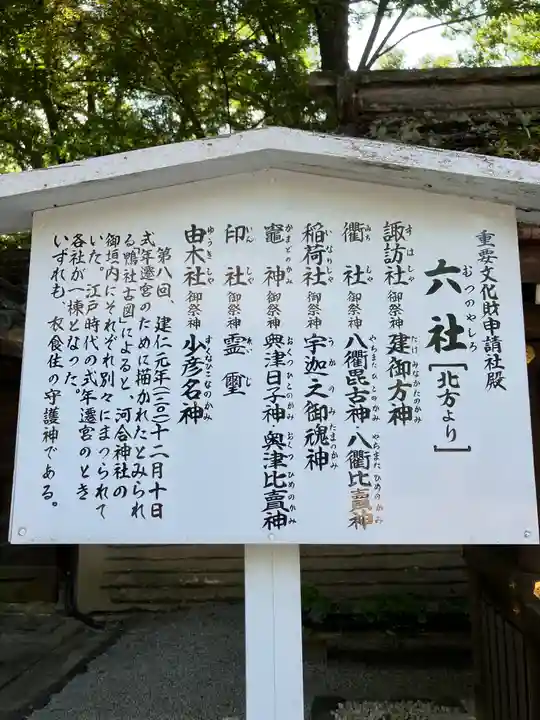 重要文化財申請社殿
六社［北方より］
おつのやしろ
諏訪社 御祭神 建御方神
すはしゃ たけみなかたのかみ
衢社 御祭神 八衢毘古神・八衢比賣神
みちしゃ やちまたひこのかみ やちまたひめのかみ
稲荷社 御祭神 宇迦之御魂神
いなりしゃ うかのみたまのかみ
竈神 御祭神 奥津日子神・奥津比賣神
かまどのかみ おくつひこのかみ おくつひめのかみ
印社 御祭神 霊璽
いんしゃ れいじ
由木社 御祭神 少彦名神
ゆうきしゃ すくなひこなのかみ
第八回、建仁元年（一二〇一）十二月十日
式年遷宮のために描かれたとみられ
る「鴨社古図」によると、河合神社の
御垣内にそれぞれ別々にまつられて
いた。江戸時代の式年遷宮のとき
各社が一棟となった。
いずれも、衣食住の守護神である。